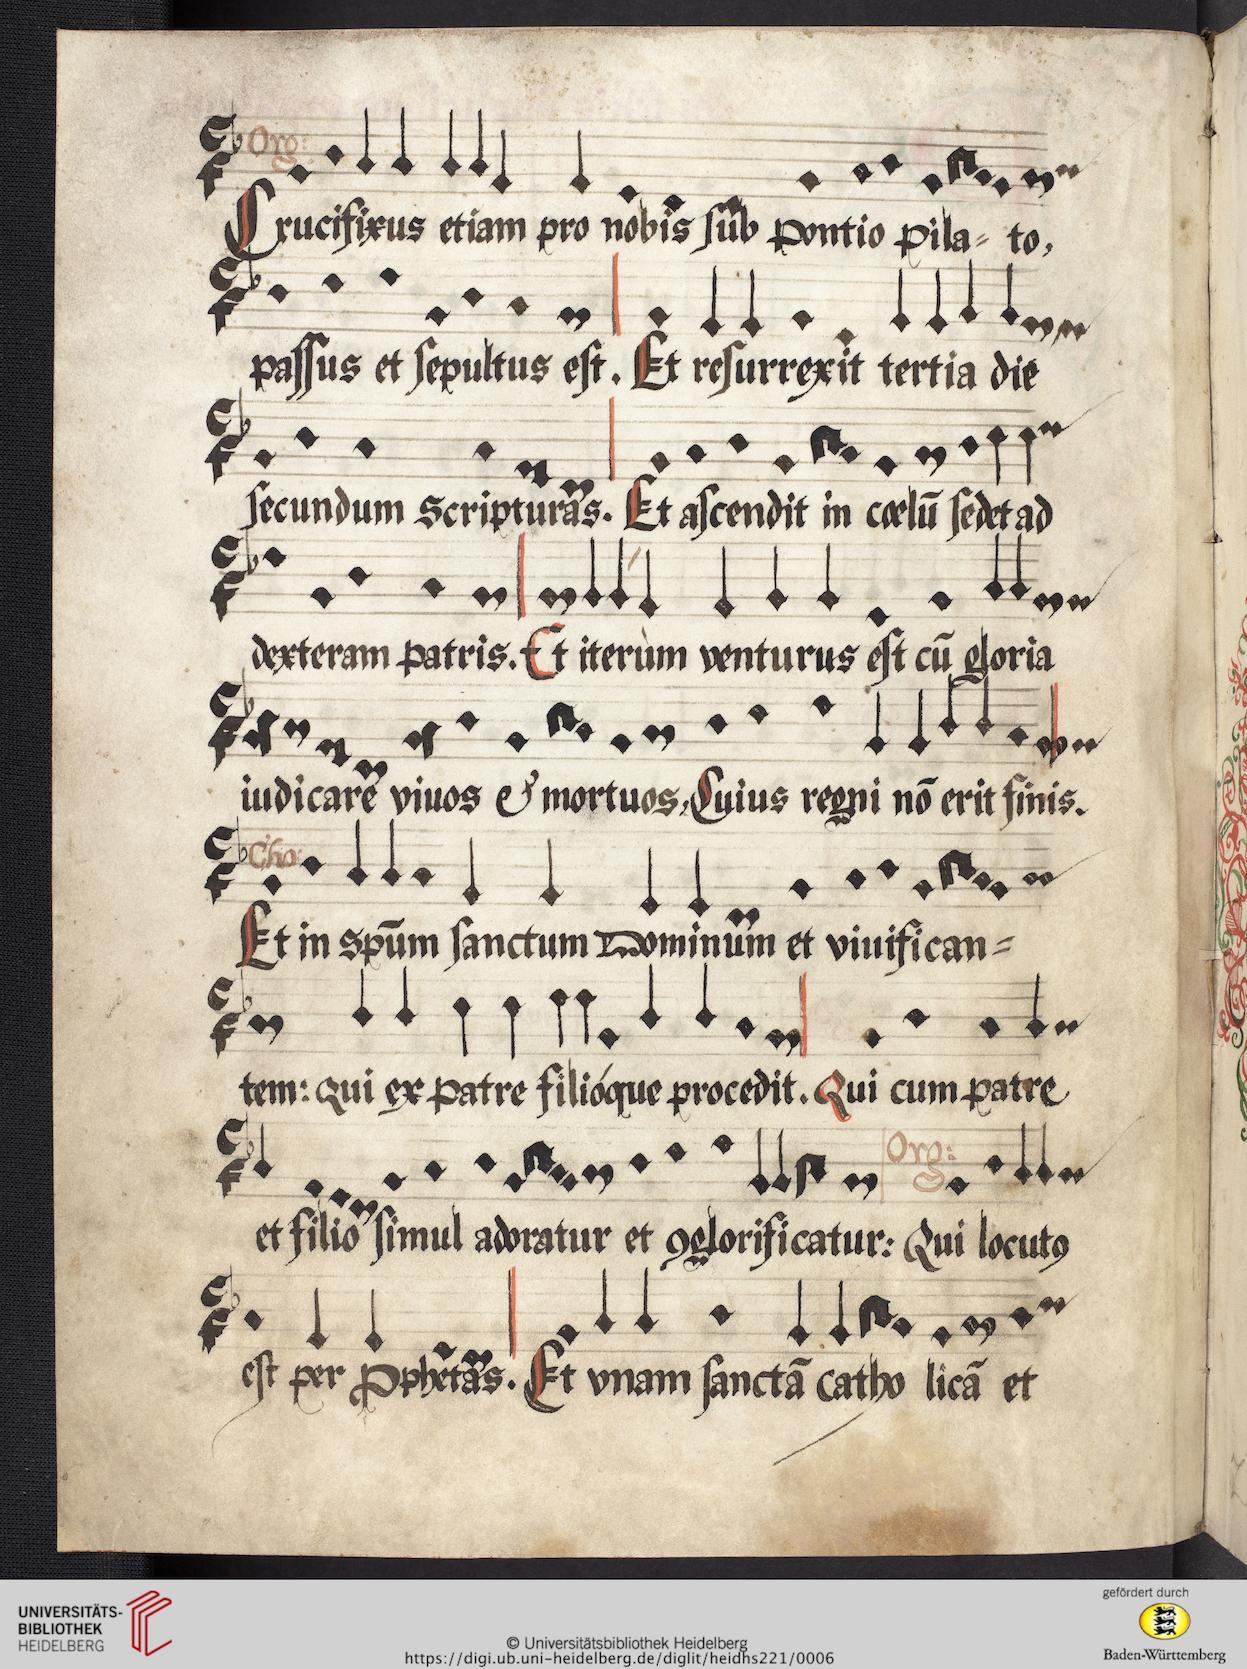 Org:
Crucifixus etiam pro nobis sub pontio pila= to,
passus et sepultus est. Et resurrexit tertia die
secundum scripturas. Et ascendit in cœlū sedet ad
dexteram patris. Et iterùm venturus est cū gloria
iudicare viuos & mortuos, Cuius regni nō erit finis.
Cho:
Et in spūm sanctum Dominum et viuifican=
tem: qui ex patre filióque procedit. Qui cum patre
Org:
et filio simul adoratur et ꝯglorificatur: Qui locutꝰ
est per Pphetas. Et vnam sanctā catho licā et
UNIVERSITÄTS-
BIBLIOTHEK
HEIDELBERG
© Universitätsbibliothek Heidelberg
https://digi.ub.uni-heidelberg.de/diglit/heidhs221/0006
gefördert durch
Baden-Württemberg